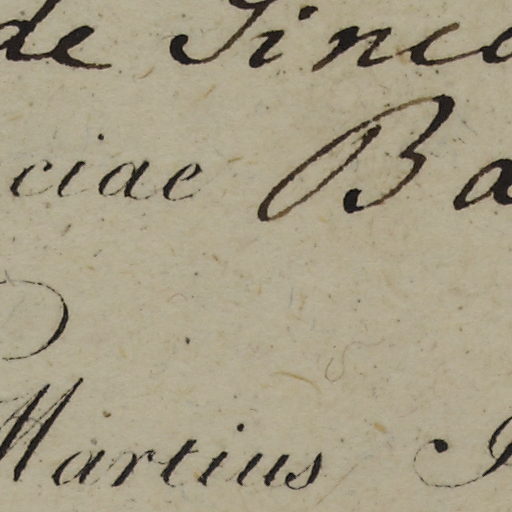 de Sinco
ciae Ba
Martius